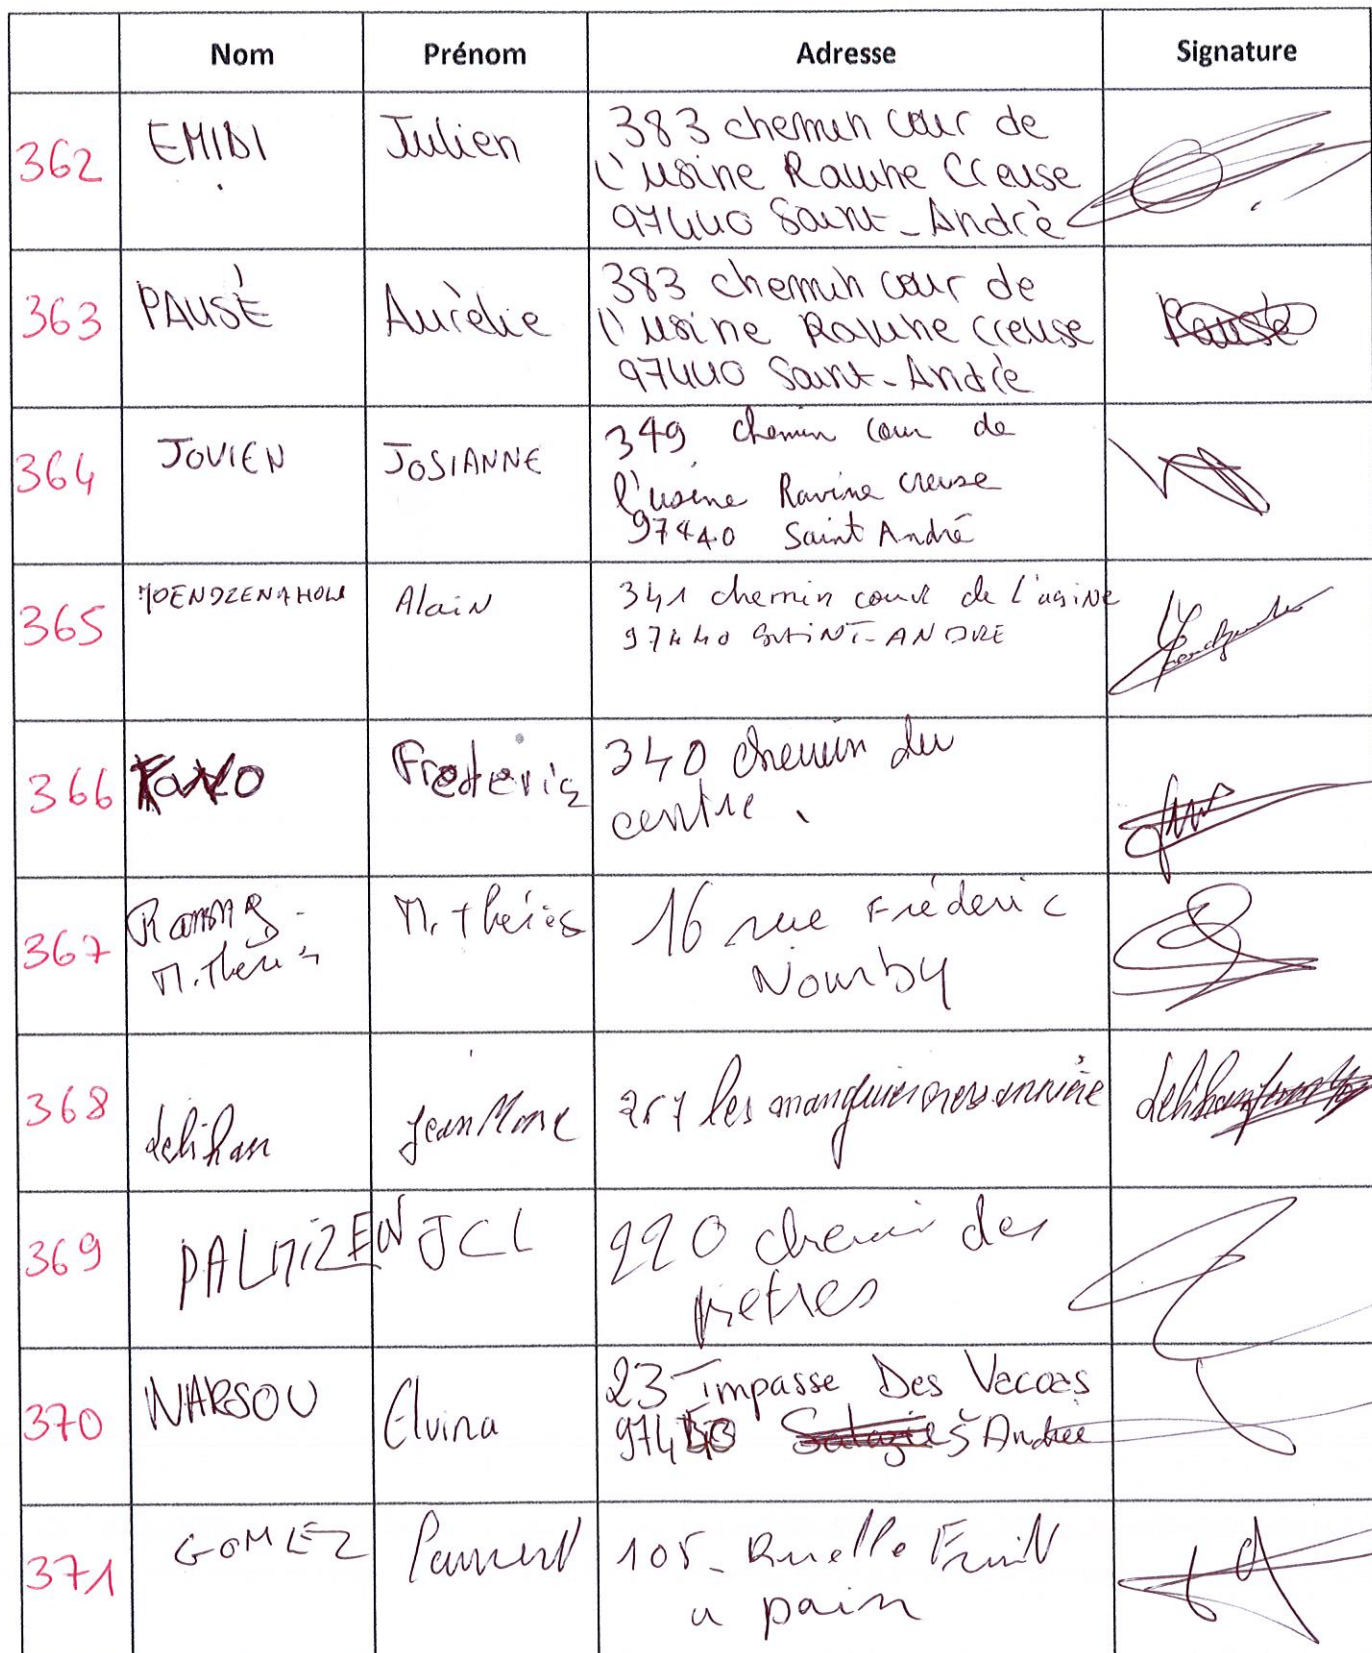 Nom Prénom Adresse Signature
362 EMIDI Julien 383 chemin cour de
l'usine Ravine Creuse
97440 Saint-André
363 PAUSÉ Aurélie 383 chemin cour de
l'usine Ravine Creuse
97440 Saint-André
364 JOVIEN JOSIANNE 349 chemin cour de
l'usine Ravine creuse
97440 Saint André
365 Alain 341 chemin cour de l'usine
97440 SAINT-ANDRE
366 Frederic 340 chemin du
centre
367 M. Thérès 16 rue Fréderic
368 Jean Marc les
369 PALMIZEN JCL 220 chemin des
pretres
370 NARSOU Elvina 23 Impasse Des Vacoas
974 St Andre
371 GOMEZ 105 - Ruelle Fruit
a pain